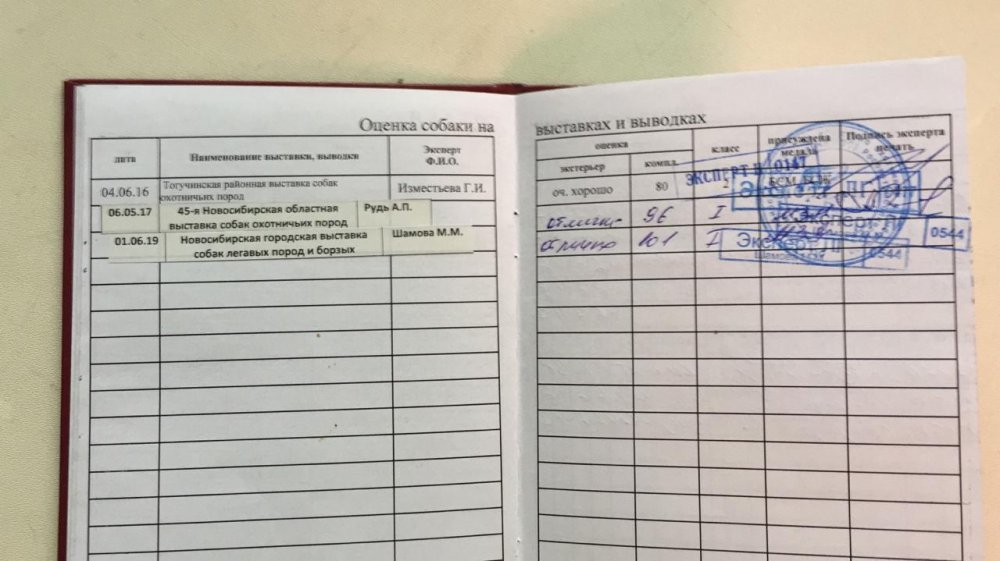 Оценка собаки на выставках и выводках
дата Наименование выставки, выводки Эксперт Ф.И.О. оценка класс присуждена медаль Подпись эксперта печать
экстерьер компл.
04.06.16 Тогучинская районная выставка собак охотничьих пород Изместьева Г.И. оч. хорошо 80 2 БСМ
ЭКСПЕРТ 0147
06.05.17 45-я Новосибирская областная выставка собак охотничьих пород Рудь А.П. отлично 96 I
0544
01.06.19 Новосибирская городская выставка собак легавых пород и борзых Шамова М.М. отлично 101 I
Эксперт
0544